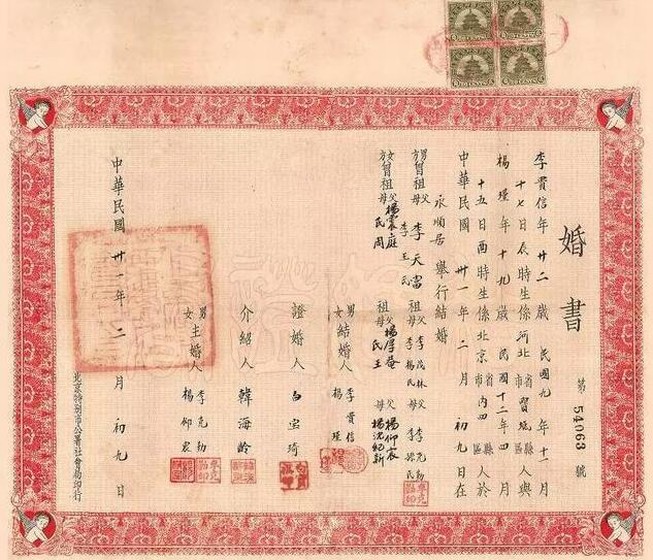 婚書
第 54063 號
李貴信年廿二歲民國九年十一月
十七日辰時生係河北省市縣區人與
楊瑾年十九歲民國十二年四月
十五日酉時生係北京省市內四縣區人於
中華民國卅一年二月初九日在
永順居舉行結婚
男方曾祖父母李天富李王氏祖父母李茂林李楊氏父母李克勤
女方曾祖父母楊震庭民周祖父母楊厚菴民王父母楊仰宸楊沈紀新
男女結婚人李貴信楊瑾
證婚人白宝琦
介紹人韓海齡
男女主婚人李克勤楊仰宸
中華民國卅一年二月初九日
北京特別市公署社會局印行